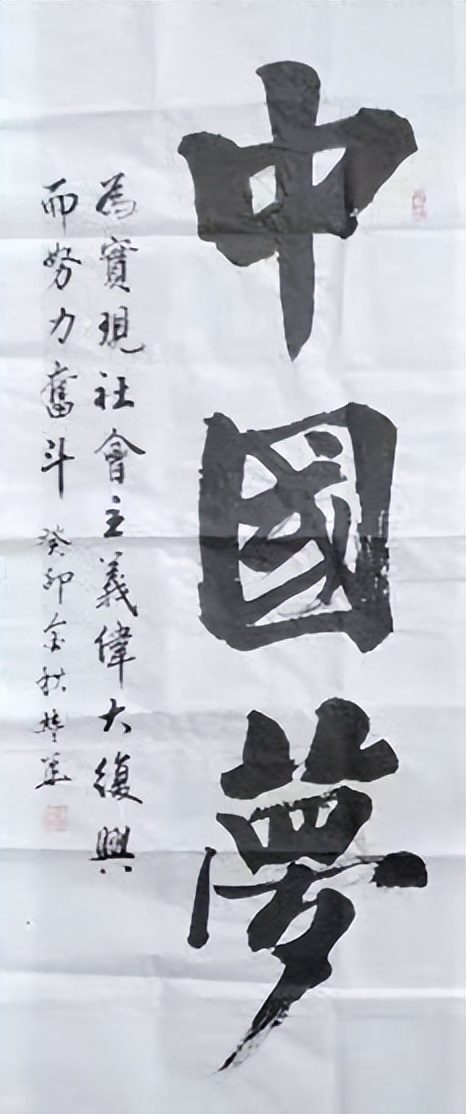 中國夢
為實現社會主義偉大復興
而努力奮斗 癸卯金秋